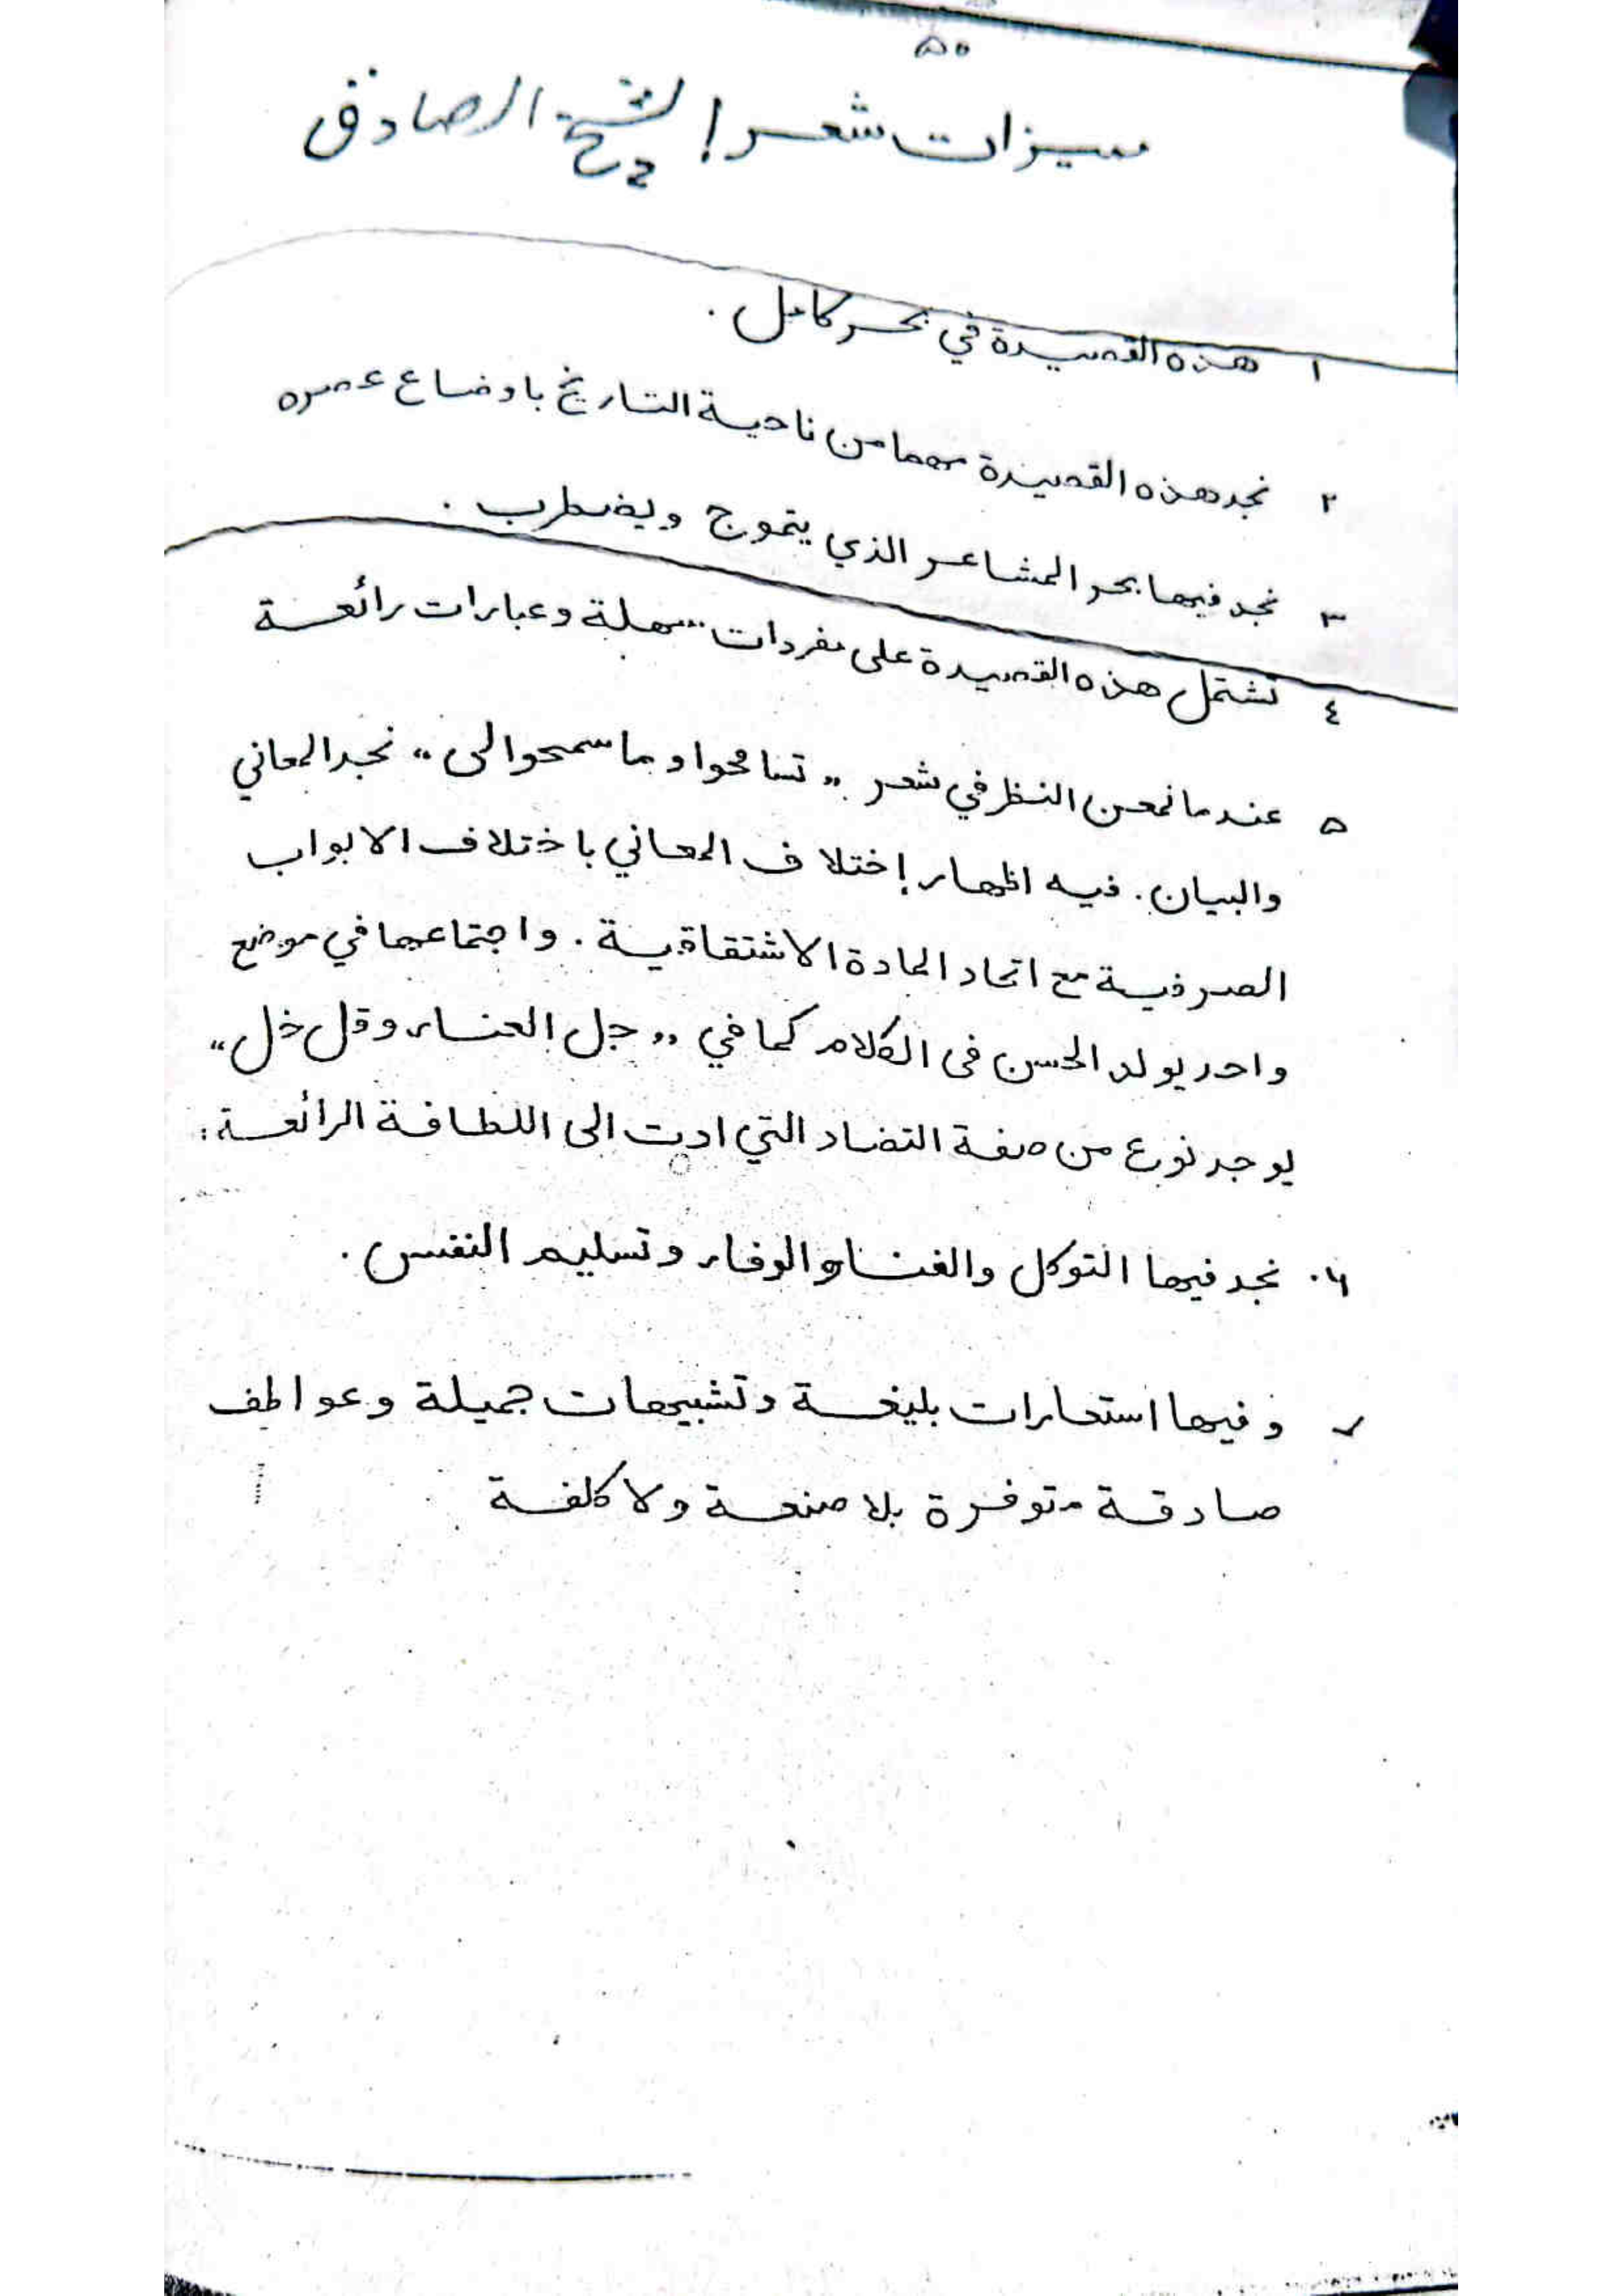 ٥٥
ميزات شعر الشيخ الصادق
١ هذه القصيدة في بحر كامل .
٢ نجد هذه القصيدة مهما من ناحية التاريخ باوضاع عصره
٣ نجد فيها بحر المشاعر الذي يتموج ويضطرب .
٤ تشتمل هذه القصيدة على مفردات سهلة وعبارات رائعة
٥ عندما نمعن النظر في شعر ,, تسامحوا وما سمحوا لى ,, نجد المعاني
والبيان . فيه اظهار إختلاف المعاني باختلاف الابواب
الصرفية مع اتحاد المادة الاشتقاقية . واجتماعها في موضع
واحد يولد الحسن فى الكلام كما في ,, جل العناء وقل خل ,,
يوجد نوع من صفة التضاد التي ادت الى اللطافة الرائعة :
٦. نجد فيها التوكل والفناء والوفاء وتسليم النفس .
٧ وفيها استعارات بليغة وتشبيهات جميلة وعواطف
صادقة متوفرة بلا صنعة ولا كلفة